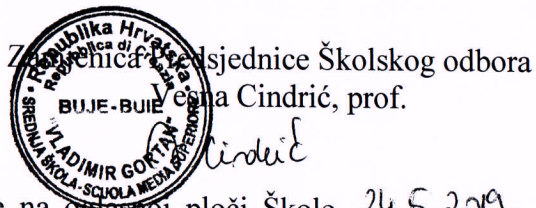 Zamjenica Predsjednice Školskog odbora
Vesna Cindrić, prof.
Republika Hrvatska
Repubblica di Croazia
BUJE-BUIE
"VLADIMIR GORTAN"
SREDNJA ŠKOLA-SCUOLA MEDIA SUPERIORE
Cindrić
na oglasnoj ploči Škole 24.5.2019